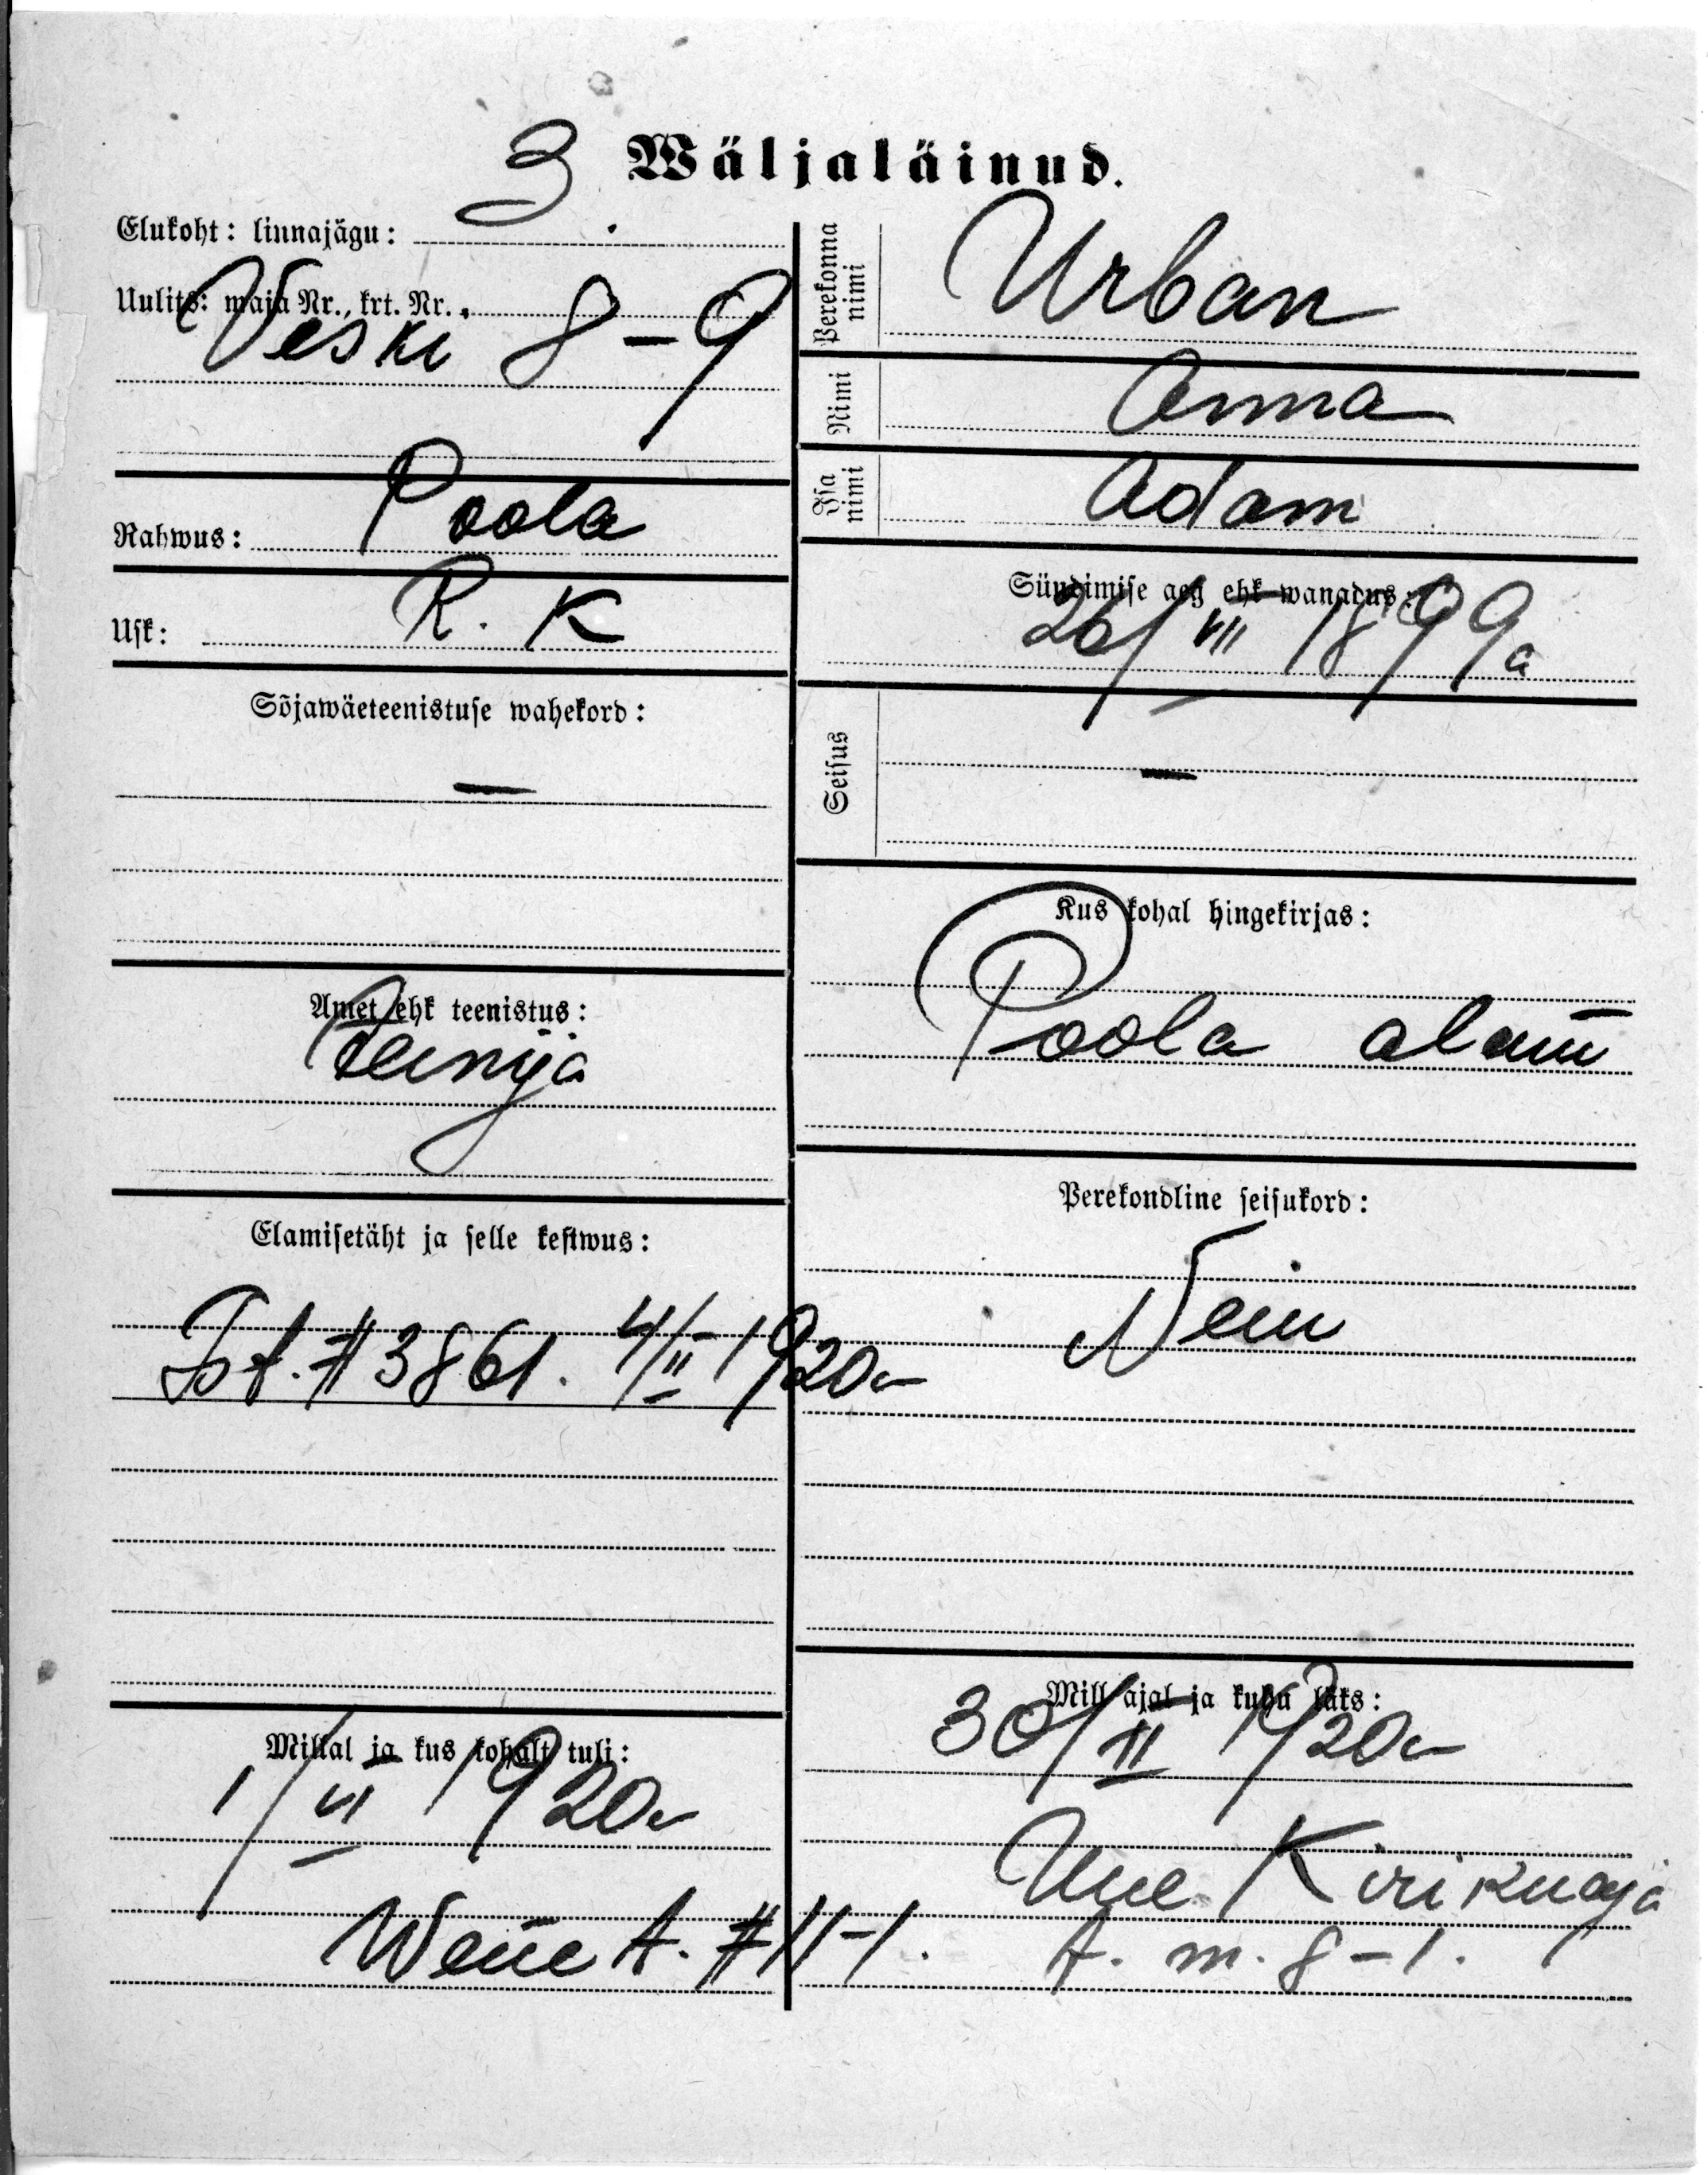 Wäljaläinud.
Elukoht: linnajägu: 3.
Uulits: maja Nr., krt. Nr.
Veski 8–9
Rahwus: Poola
Usk: R. K
Sõjawäeteenistuse wahekord:
—
Amet ehk teenistus:
Teenija
Elamisetäht ja selle kestwus:
# 3861. 4/II–1920 a
Millal ja kus kohalt tuli:
1/VI 1920 a
Wene t. # 11–1.
Perekonna nimi Urban
Nimi Anna
Isa nimi Adam
Sündimise aeg ehk wanadus:
26/VII 1899 a
Seisus
—
Kus kohal hingekirjas:
Poola alam
Perekondline seisukord:
Neiu
Mill ajal ja kuhu läks:
30/II 1920 a
Uue Kirikuaja
t. m. 8–1.